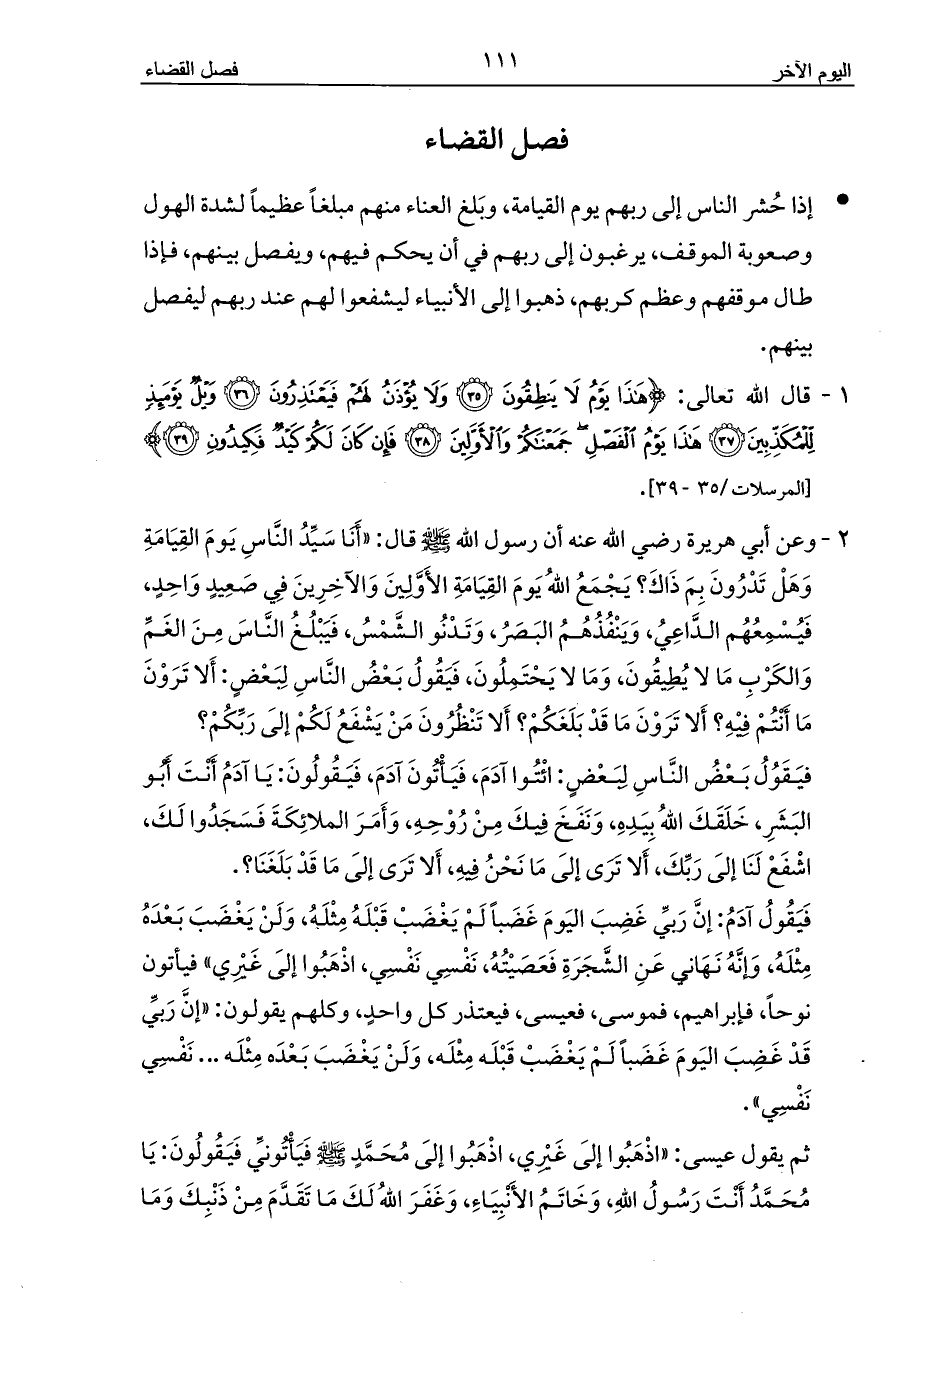 اليوم الآخر ١١١ فصل القضاء
فصل القضاء
• إذا حُشر الناس إلى ربهم يوم القيامة، وبَلغ العناء منهم مبلغاً عظيماً لشدة الهول
وصعوبة الموقف، يرغبون إلى ربهم في أن يحكم فيهم، ويفصل بينهم، فإذا
طال موقفهم وعظم كربهم، ذهبوا إلى الأنبياء ليشفعوا لهم عند ربهم ليفصل
بينهم.
١ - قال الله تعالى: ﴿هَٰذَا يَوْمُ لَا يَنطِقُونَ ﴿٣٥﴾ وَلَا يُؤْذَنُ لَهُمْ فَيَعْتَذِرُونَ ﴿٣٦﴾ وَيْلٌ يَوْمَئِذٍ
لِّلْمُكَذِّبِينَ ﴿٣٧﴾ هَٰذَا يَوْمُ الْفَصْلِ ۖ جَمَعْنَاكُمْ وَالْأَوَّلِينَ ﴿٣٨﴾ فَإِن كَانَ لَكُمْ كَيْدٌ فَكِيدُونِ ﴿٣٩﴾﴾
[المرسلات/٣٥ - ٣٩].
٢ - وعن أبي هريرة رضي الله عنه أن رسول الله ﷺ قال: «أَنَا سَيِّدُ النَّاسِ يَومَ القِيَامَةِ
وَهَلْ تَدْرُونَ بِمَ ذَاكَ؟ يَجْمَعُ اللهُ يَومَ القِيَامَةِ الأَوَّلِينَ وَالآخِرِينَ فِي صَعِيدٍ وَاحِدٍ،
فَيُسْمِعُهُم الدَّاعِيُ، وَيَنْفُذُهُمُ البَصَرُ، وَتَدْنُو الشَّمْسُ، فَيَبْلُغُ النَّاسَ مِنَ الغَمِّ
وَالكَرْبِ مَا لا يُطِيقُونَ، وَمَا لا يَحْتَمِلُونَ، فَيَقُولُ بَعْضُ النَّاسِ لِبَعْضٍ: أَلا تَرَوْنَ
مَا أَنْتُمْ فِيْهِ؟ أَلا تَرَوْنَ مَا قَدْ بَلَغَكُمْ؟ أَلا تَنْظُرُونَ مَنْ يَشْفَعُ لَكُمْ إلَى رَبِّكُمْ؟
فَيَقُوُلُ بَعْضُ النَّاسِ لِبَعْضٍ: ائْتُوا آدَمَ، فَيَأْتُونَ آدَمَ، فَيَقُولُونَ: يَا آدَمُ أَنْتَ أَبُو
البَشَرِ، خَلَقَكَ اللهُ بِيَدِهِ، وَنَفَخَ فِيكَ مِنْ رُوْحِهِ، وَأَمَرَ الملائِكَةَ فَسَجَدُوا لَكَ،
اشْفَعْ لَنَا إلَى رَبِّكَ، أَلا تَرَى إلَى مَا نَحْنُ فِيهِ، أَلا تَرَى إلَى مَا قَدْ بَلَغَنَا؟.
فَيَقُولُ آدَمُ: إنَّ رَبِّي غَضِبَ اليَومَ غَضَباً لَمْ يَغْضَبْ قَبْلَهُ مِثْلَهُ، وَلَنْ يَغْضَبَ بَعْدَهُ
مِثْلَهُ، وَإنَّهُ نَهَاني عَنِ الشَّجَرَةِ فَعَصَيْتُهُ، نَفْسِي نَفْسِي، اذْهَبُوا إلَى غَيْرِي» فيأتون
نوحاً، فإبراهيم، فموسى، فعيسى، فيعتذر كل واحدٍ، وكلهم يقولون: «إنَّ رَبِّي
قَدْ غَضِبَ اليَومَ غَضَباً لَمْ يَغْضَبْ قَبْلَه مِثْلَه، وَلَنْ يَغْضَبَ بَعْدَه مِثْلَه ... نَفْسِي
نَفْسِي».
ثم يقول عيسى: «اذْهَبُوا إلَى غَيْرِي، اذْهَبُوا إلَى مُحَمَّدٍ ﷺ فَيَأْتُونِّي فَيَقُولُونَ: يَا
مُحَمَّدُ أَنْتَ رَسُولُ اللهِ، وَخَاتَمُ الأَنْبِيَاءِ، وَغَفَرَ اللهُ لَكَ مَا تَقَدَّمَ مِنْ ذَنْبِكَ وَمَا